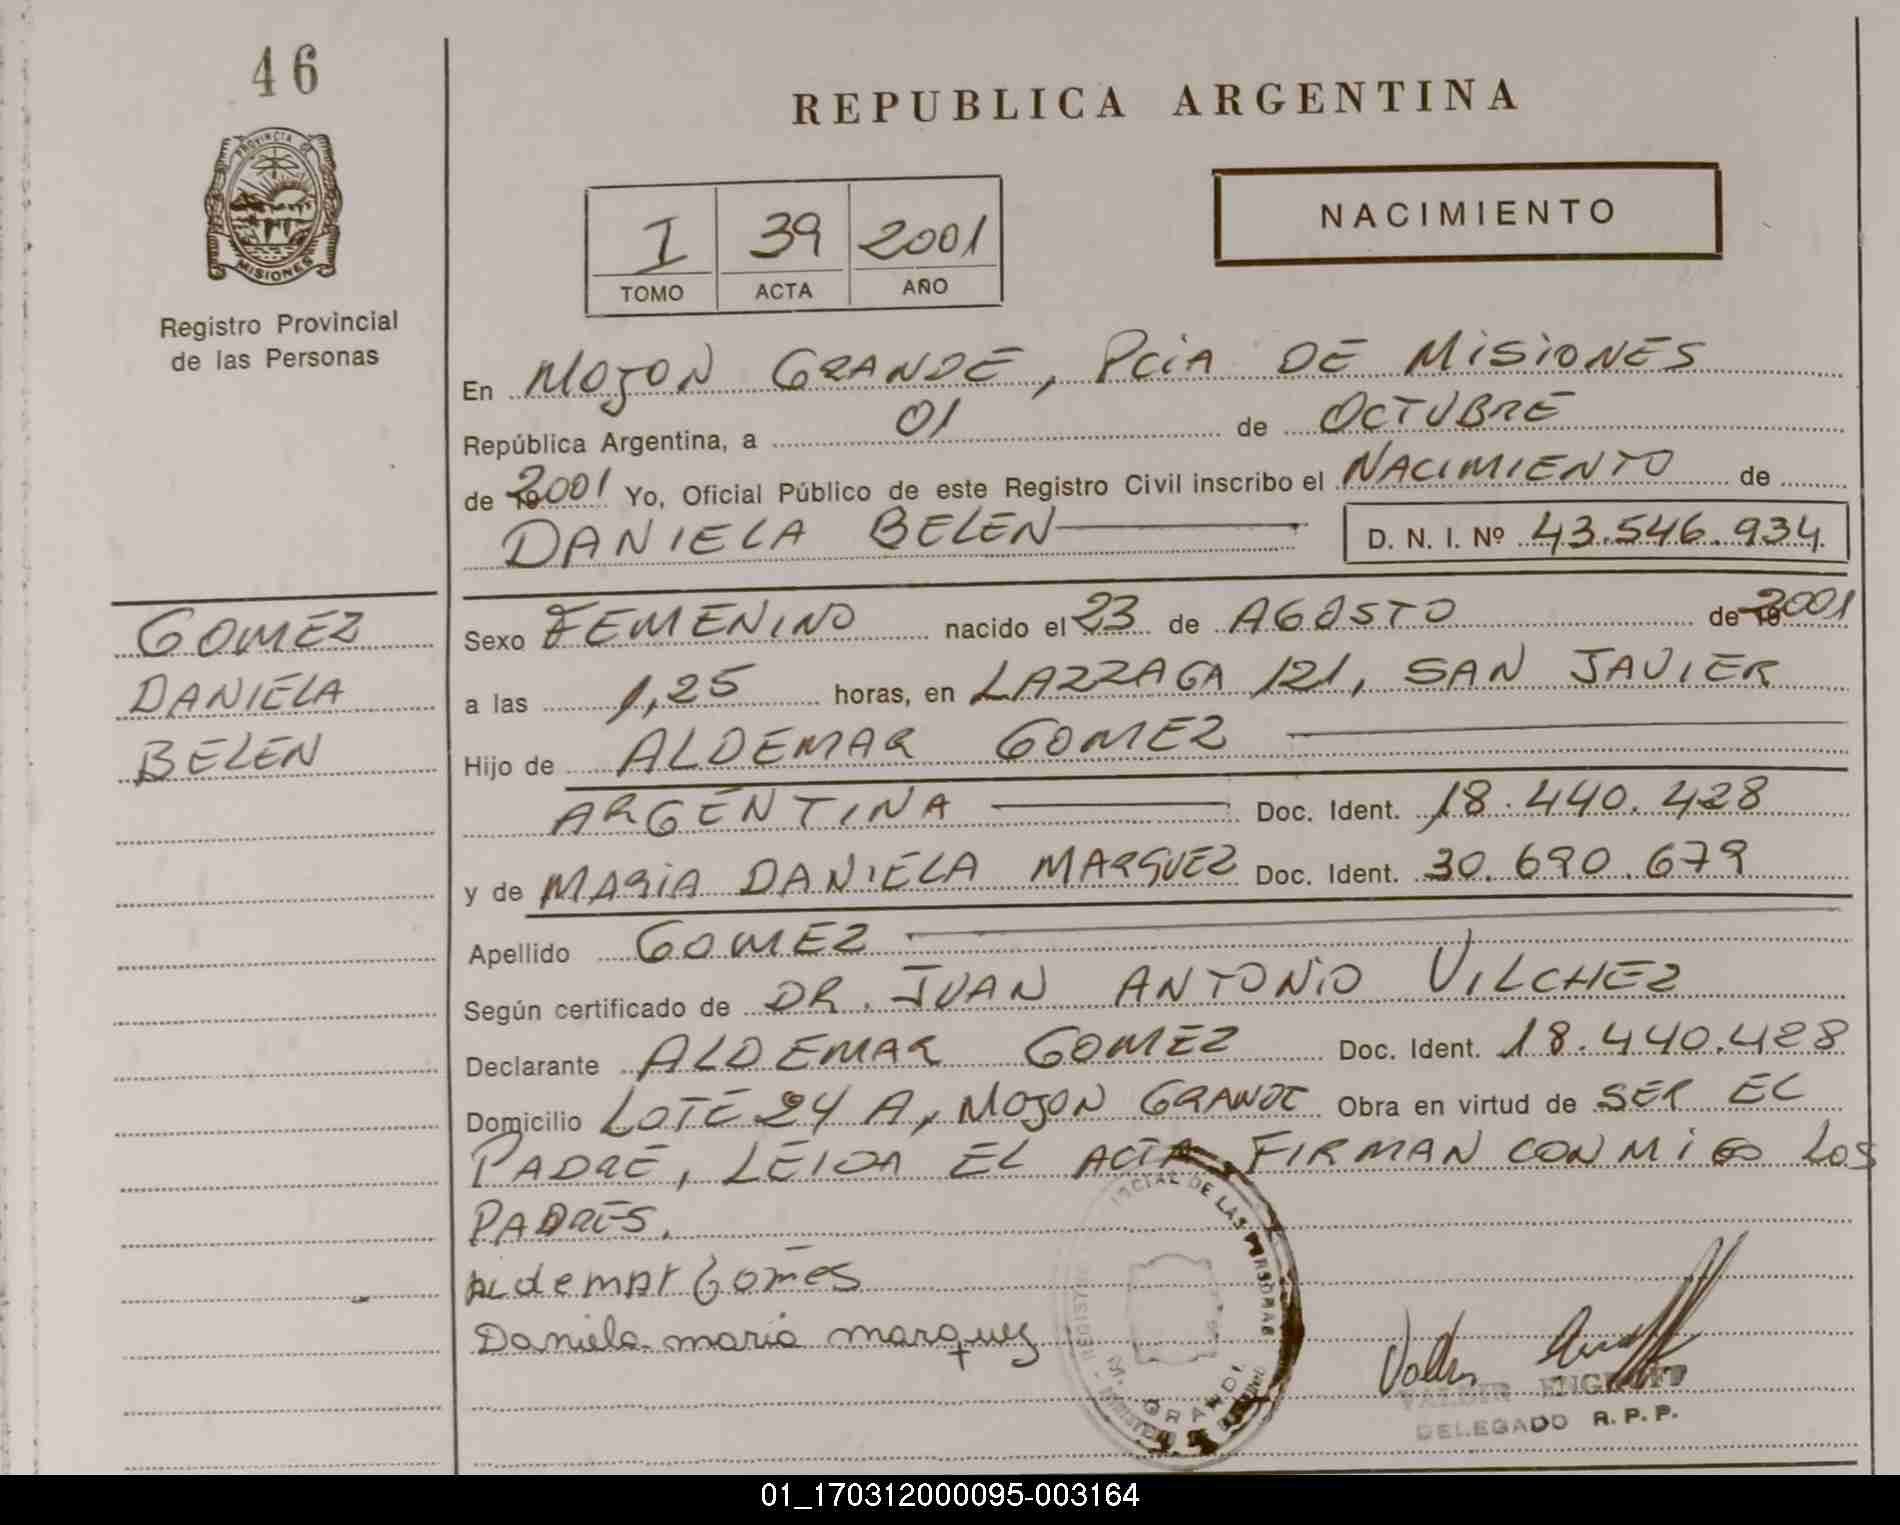 46
REPUBLICA ARGENTINA
PROVINCIA DE
MISIONES
Registro Provincial
de las Personas
I 39 2001
TOMO ACTA AÑO
NACIMIENTO
En MOJON GRANDE, PCIA DE MISIONES
República Argentina, a 01 de OCTUBRE
de 2001 Yo, Oficial Público de este Registro Civil inscribo el NACIMIENTO de
DANIELA BELEN D. N. I. Nº 43.546.934
GOMEZ
DANIELA
BELEN
Sexo FEMENINO nacido el 23 de AGOSTO de 2001
a las 1,25 horas, en LAZZAGA 121, SAN JAVIER
Hijo de ALDEMAR GOMEZ
ARGENTINA Doc. Ident. 18.440.428
y de MARIA DANIELA MARQUEZ Doc. Ident. 30.690.679
Apellido GOMEZ
Según certificado de DR. JUAN ANTONIO VILCHEZ
Declarante ALDEMAR GOMEZ Doc. Ident. 18.440.428
Domicilio LOTE 24 A, MOJON GRANDE Obra en virtud de SER EL
PADRE, LEIDA EL ACTA FIRMAN CONMIGO LOS
PADRES.
Aldemar Gomes
Daniela maria marquez
DE LAS PERSONAS
VALDIR
DELEGADO R. P. P.
01_170312000095-003164